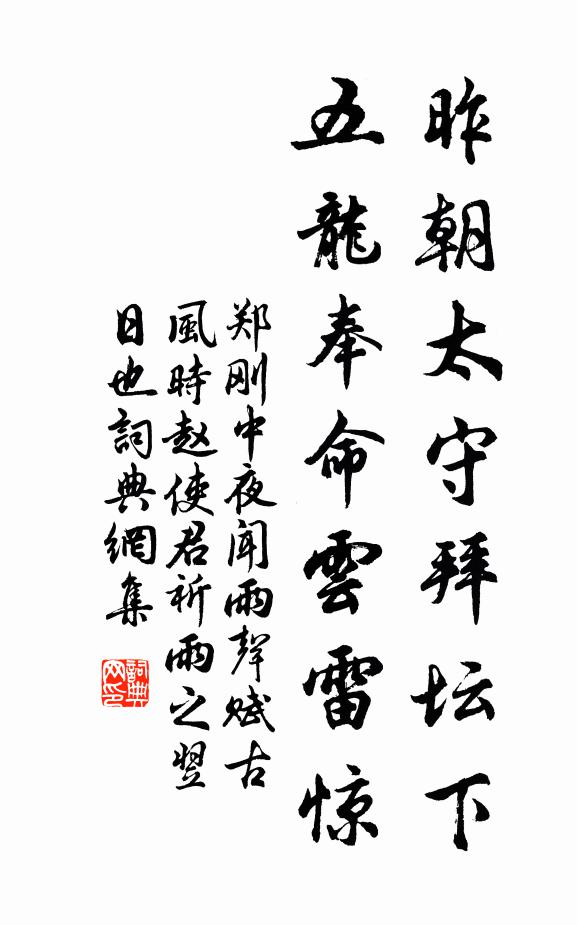 昨朝太守拜坛下
五龍奉命雲雷惊
郑刚中夜闻雨聲赋古
風時赵使君祈雨之翌
日也詞典網集
詞典
网印